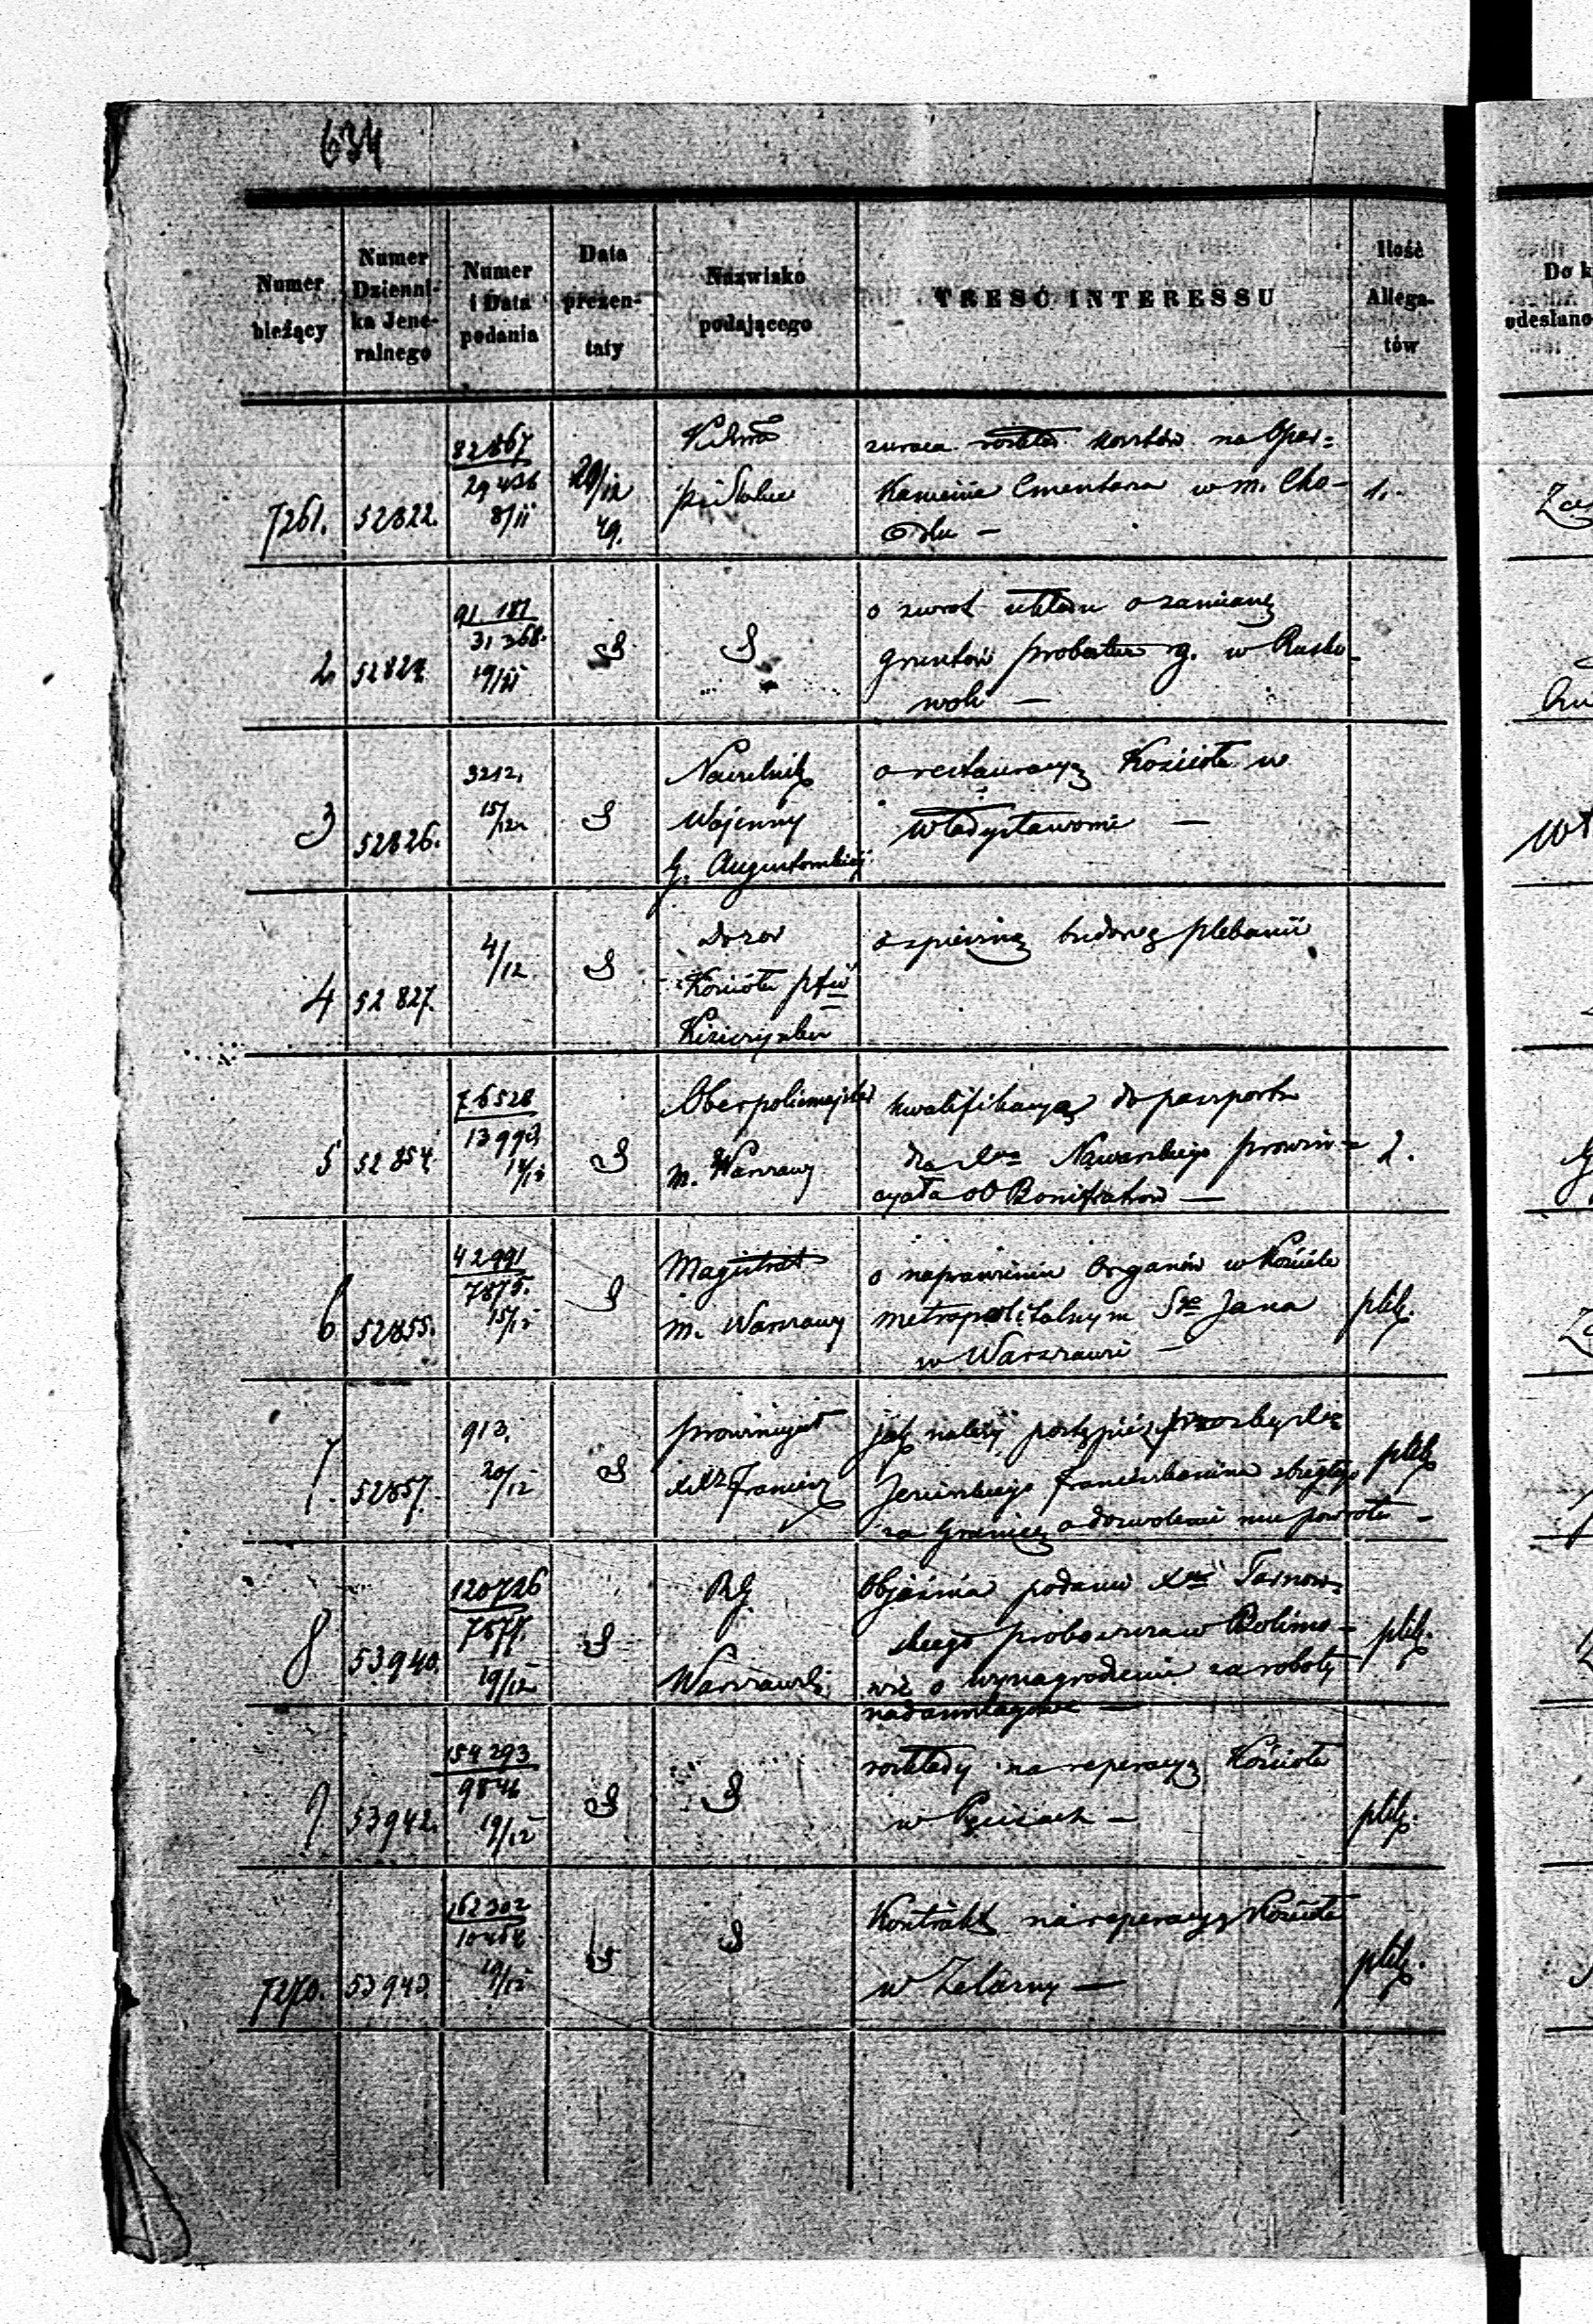 634
Numer bieżący
Numer Dzienni-ka Jene-ralnego
Numer i Data podania
Data prezen-taty
Nazwisko podającego
TREŚĆ INTERESSU
Ilość Allega-tów
Do k
odesłano
7261. 52822. 82867 29436 8/11 20/12 49.
zwraca rozkład kosztów na Opar=
kanienie Cmentarza w m. Cho- 1.
dlu —
2 52824. 91187 31368. 19/11
o zwrot układu o zamianę
gruntów probostwa w Rusko
woli —
3 52826. 3212. 15/12 Naczelnik Wojenny G. Augustowskiej
o restauracyą Kościoła w
Władysławowie —
4 52827. 4/12 Dozor Kościoła
o spieszną budowę plebanii
5 52854. 76528 13993 14/12 Oberpolicmajster m. Warszawy
kwalifikacyą do paszportu
dla Xa Nawarskiego prowin= 2.
cyała OO Bonifratrów —
6 52855. 42991 7875. 15/12 Magistrat m. Warszawy
o naprawieniu Organów w Kościele
metropolitalnym Sgo Jana plik.
w Warszawie —
7. 52857. 913. 20/12 prowincyał XX Francisz
jak należy postąpić z prozbą Xa plik
Franciszkanina zbiegłego
za Granicę o dozwolenie mu powrotu —
8 53940. 120726 7577. 19/12 RG. Warszawski
Objaśnia podanie Xa Tarnow=
skiego proboszcza w Bolimo- plik.
wie o wynagrodzenie za roboty
nadanszlagowe —
9 53942. 154293 9846 19/12
rozkłady na reperacyą Kościoła
w Pęcicach — plik.
7270. 53943 162302 10464 19/12
Kontrakt na reperacyą Kościoła
w Żelazny — plik.